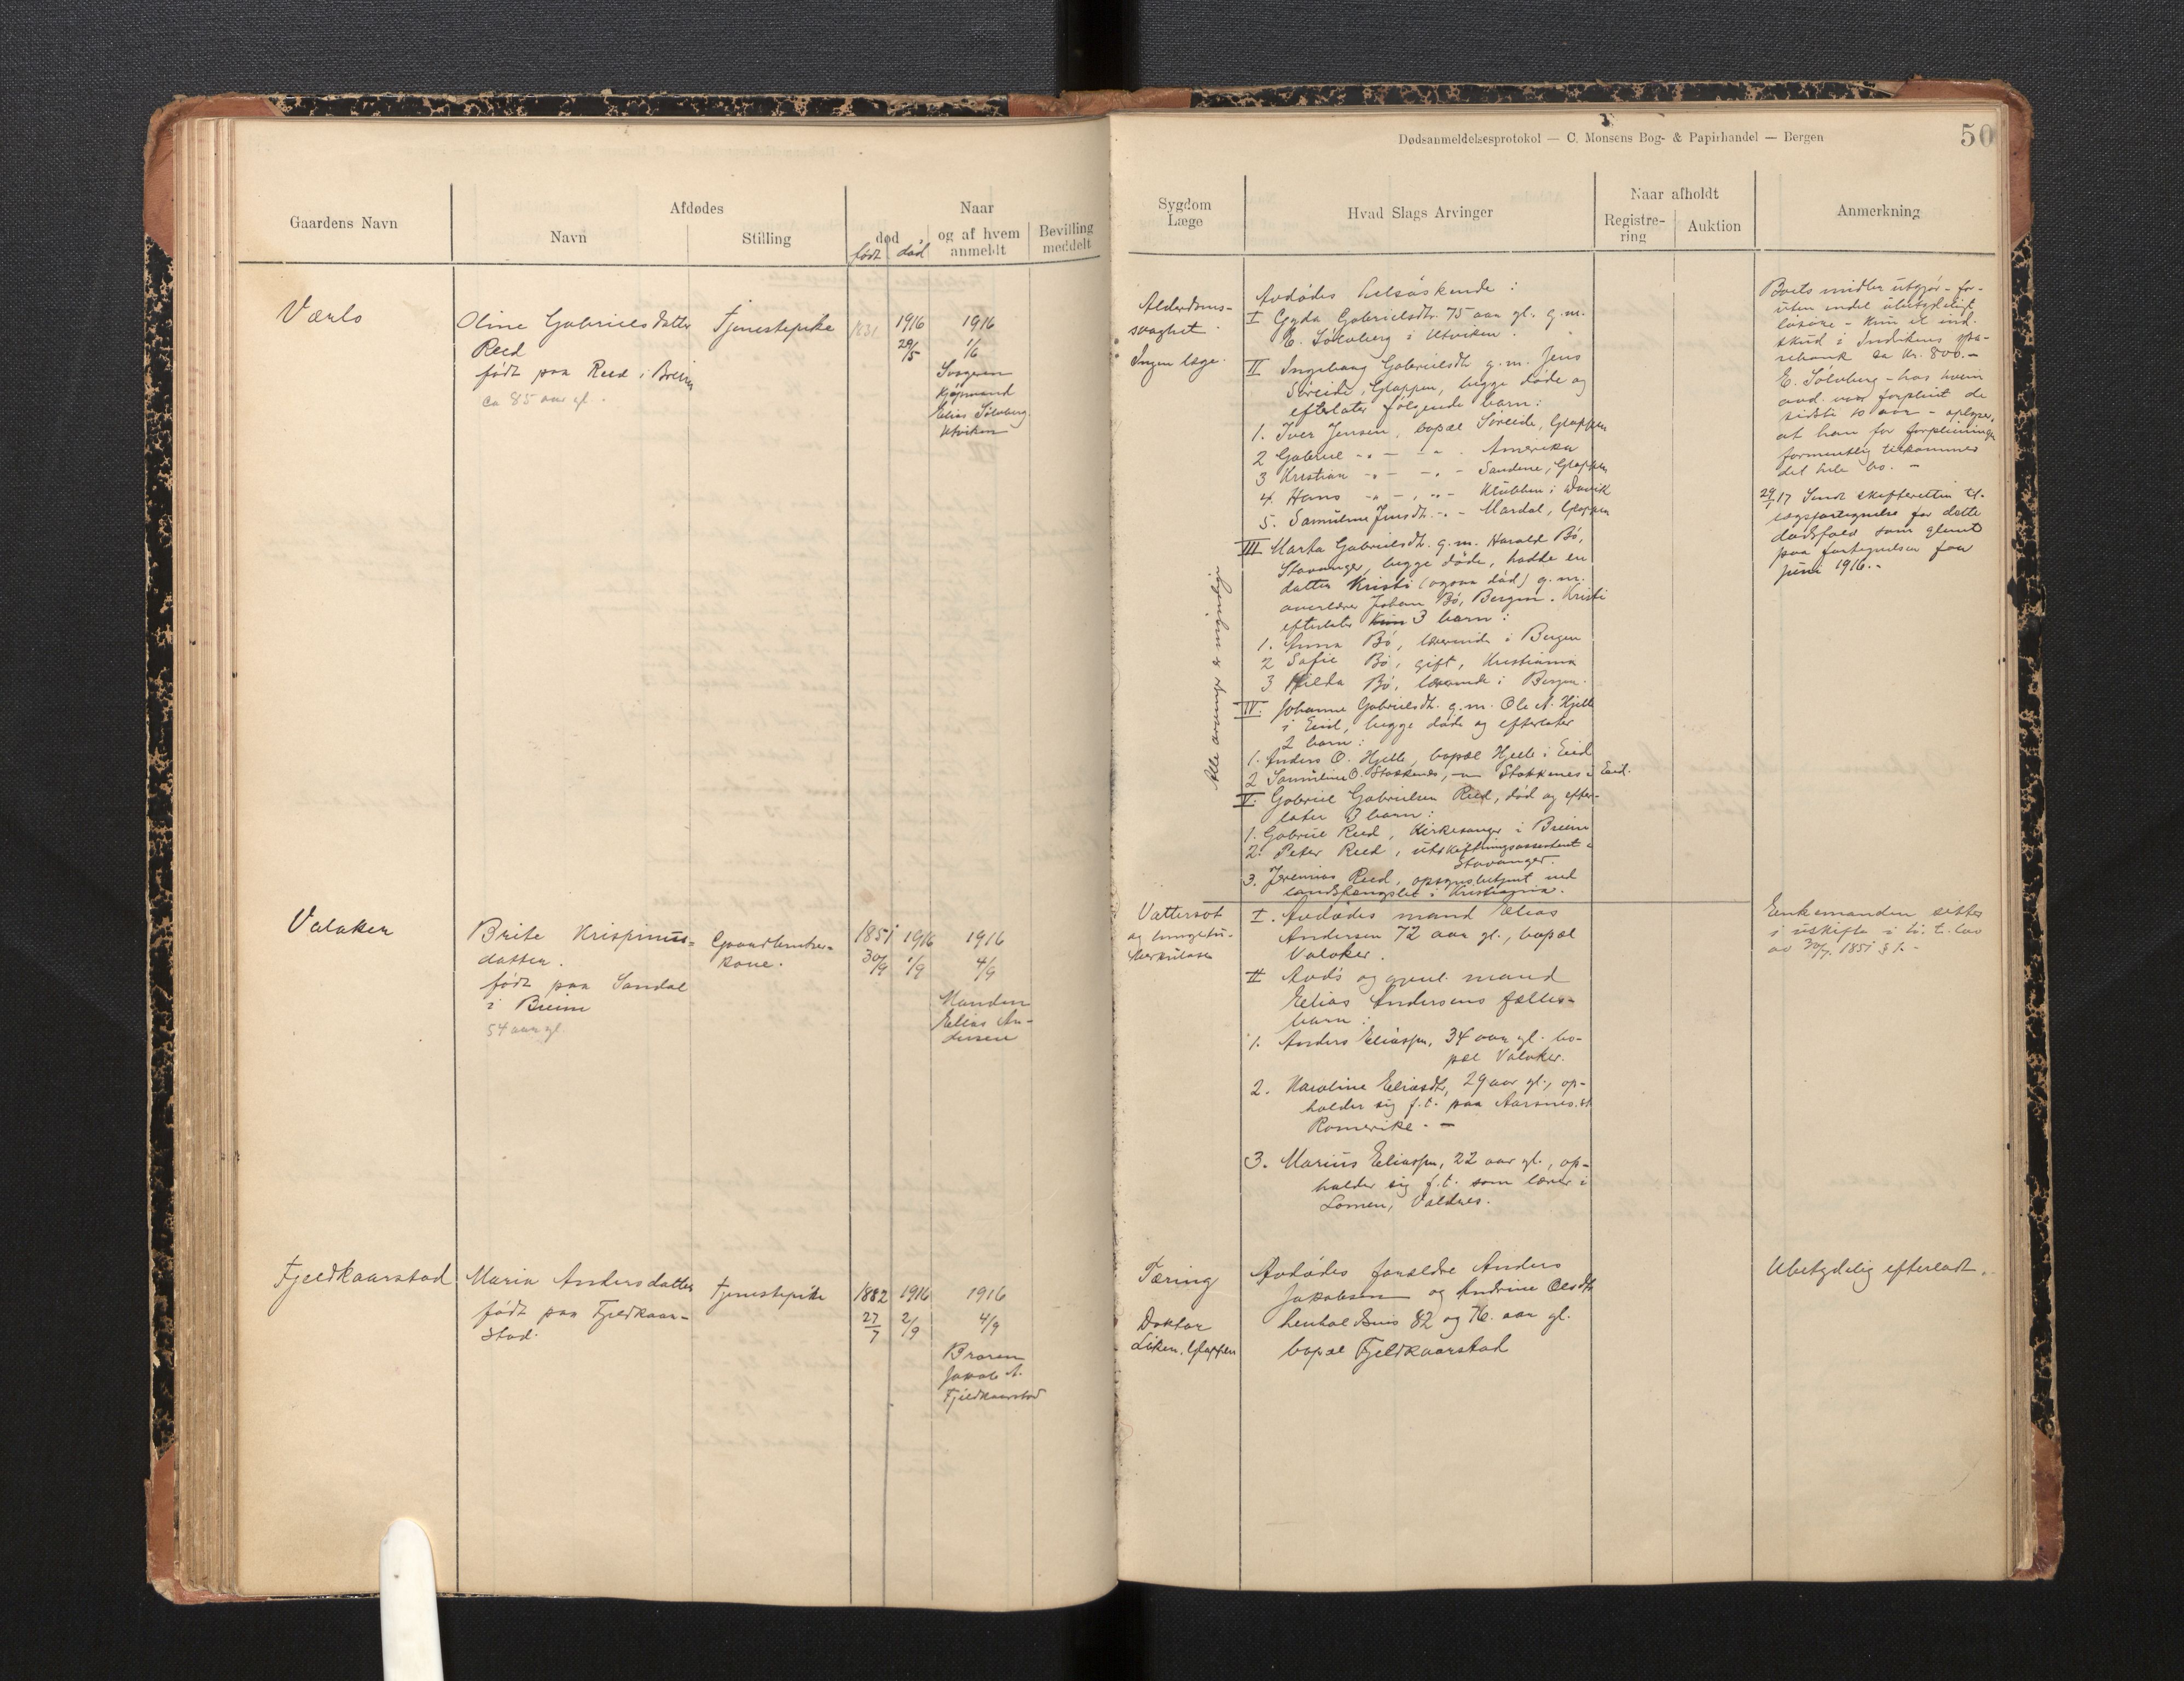 Dødsanmeldelsesprotokol — C. Monsens Bog- & Papirhandel — Bergen
50
Gaardens Navn
Afdødes
Navn
Stilling
Naar
død
født død
og af hvem
anmeldt
Bevilling
meddelt
Sygdom
Læge
Hvad Slags Arvinger
Naar afholdt
Registre-
ring
Auktion
Anmerkning
Værlo
Oline Gabrielsdatter
Reed
født paa Reed i Breim
ca 85 aar gl.
Tjenestepike
1831
1916
29/5
1916
1/6
Svogeren
Kjøpmand
Elias Sölvberg
Utviken
Alderdoms-
svaghet.
Ingen læge.
Alle arvinger er myndige
Avdödes helsöskende:
I Gyda Gabrielsdtr. 75 aar gl. g.m.
E. Sölvberg i Utviken.
II Ingeborg Gabrielsdtr g.m. Jens
Søreide, Gloppen, begge døde og
efterlater følgende barn:
1. Iver Jensen, bopæl Søreide, Gloppen
2 Gabriel -"- - -"- Amerika
3 Kristian -"- -"- Sandene, Gloppen
4. Hans -"- -"- Klubben i Davik
5. Samuline Jensdtr. -"- Mardal, Gloppen
III Marta Gabrielsdtr. g.m. Harald Bö,
Stavanger, begge döde, hadde en
datter Kristi (ogsaa död) g.m.
overlærer Johan Bö, Bergen. Kristi
efterlater kun 3 barn:
1. Anna Bö, lærerinde i Bergen
2 Sofie Bö, gift, Kristiania
3 Hilda Bö, lærerinde i Bergen.
IV. Johanne Gabrielsdtr. g.m. Ole A. Hjelle
i Eid, begge döde og efterlater
2 barn:
1. Anders O. Hjelle, bopæl Hjelle i Eid
2 Samuline O. Stokkenes, -"- Stokkenes i Eid.
V. Gabriel Gabrielsen Reed, död og efter-
later 3 barn:
1. Gabriel Reed, Kirkesanger i Breim
2. Peter Reed, utskiftningsassistent i
Stavanger.
3. Jeremias Reed, opsynsbetjent ved
landsfængslet i Kristiania.
Boets midler utgjør - for-
uten endel ubetydeligt
løsøre - kun et ind-
skud i Indvikens spa-
rebank ca kr. 800.-
E. Sölvberg - hos hvem
avd. var forpleiet de
sidste 10 aar - oplyser,
at han for forpleiningen
formentlig tilkommer
det hele bo. -
29/1 17 Sendt skifteretten til-
lægsfortegnelse for dette
dødsfald som glemt
paa fortegnelsen for
juni 1916.-
Valaker
Brite Krispinus-
datter.
født paa Sandal
i Breim
54 aar gl.
Gaardbruker-
kone.
1851
30/9
1916
1/9
1916
4/9
Manden
Elias An-
dersen
Vattersot
og lungetu-
berkulose
I. Avdödes mand Elias
Andersen 72 aar gl., bopæl
Valaker.
II Avd's og gjenl. mand
Elias Andersens fælles-
barn:
1. Anders Eliassen, 34 aar gl. bo-
pæl Valaker.
2. Karoline Eliasdtr, 29 aar gl., op-
holder sig f.t. paa Aarnes st
Romerike. -
3. Marius Eliassen, 22 aar gl., op-
holder sig f.t. som lærer i
Lomen, Valdres.
Enkemanden sitter
i uskifte i h. t. lov
av 30/7. 1851 § 1. -
Fjeldkaarstad
Maria Andersdatter
født paa Fjeldkaar-
stad.
Tjenestepike
1882
27/7
1916
2/9
1916
4/9
Broren
Jakob A.
Fjeldkaarstad
Tæring
Doktor
Gloppen
Avdödes forældre Anders
Jakobsen og Andrine Olsdtr
henholdsvis 82 og 76 aar gl.
bopæl Fjeldkaarstad
Ubetydelig efterladt.